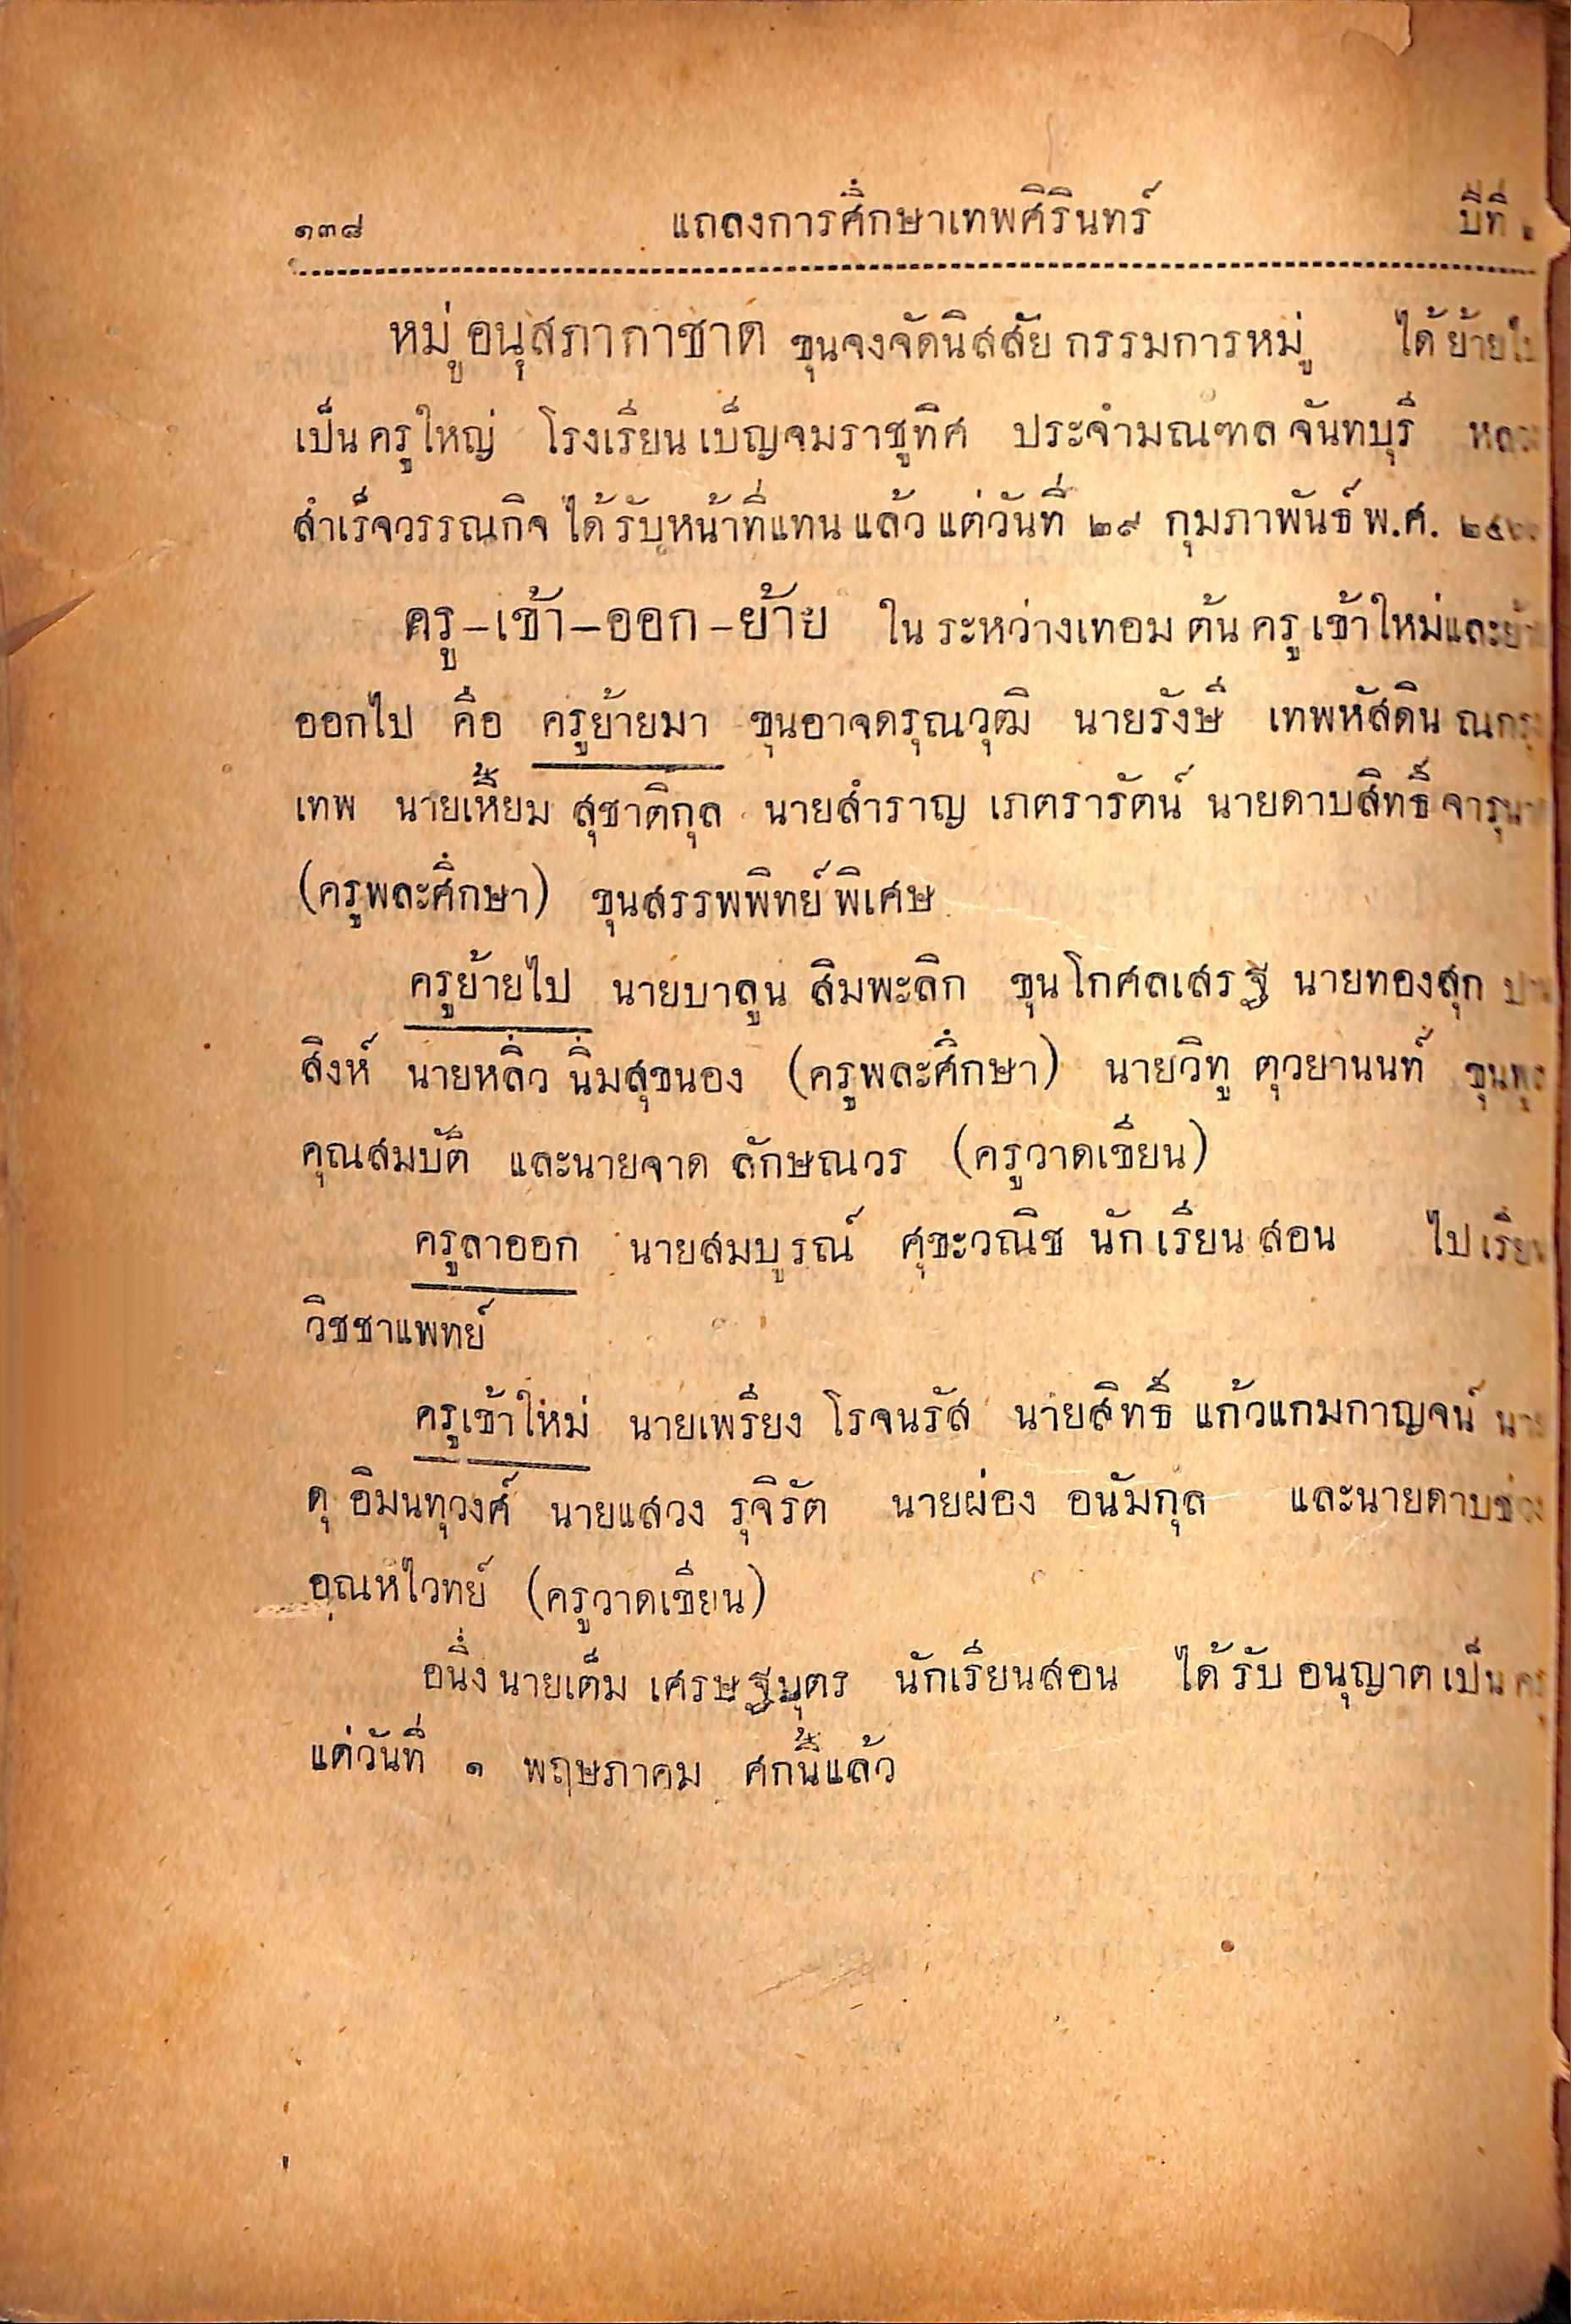 ๑๓๘ แถลงการศึกษาเทพศิรินทร์ ปีที่
หมู่อนุสภากาชาด ขุนจงจัดนิสสัย กรรมการหมู่ ได้ย้าย
เป็นครูใหญ่ โรงเรียนเบ็ญจมราชูทิศ ประจำมณฑลจันทบุรี
สำเร็จวรรณกิจ ได้รับหน้าที่แทนแล้ว แต่วันที่ ๒๙ กุมภาพันธ์ พ.ศ.
ครู-เข้า-ออก-ย้าย ในระหว่างเทอมต้น ครูเข้าใหม่และ
ออกไป คือ ครูย้ายมา ขุนอาจดรุณวุฒิ นายรังษี เทพหัสดิน
เทพ นายเหี้ยม สุชาติกุล นายสำราญ เภตรารัตน์ นายดาบสิทธิ์
(ครูพละศึกษา) ขุนสรรพพิทย์พิเศษ
ครูย้ายไป นายบาลูน สิมพะลิก ขุนโกศลเสรฐี นายทองสุก
สิงห์ นายหลิ่ว นิ่มสุขนอง (ครูพละศึกษา) นายวิทู ตุวยานนท์
คุณสมบัติ และนายจาด ลักษณวร (ครูวาดเขียน)
ครูลาออก นายสมบูรณ์ ศุขะวณิช นักเรียนสอน ไปเรียน
วิชชาแพทย์
ครูเข้าใหม่ นายเพรียง โรจนรัส นายสิทธิ์ แก้วแกมกาญจน์
ดุ อิมนทุวงศ์ นายแสวง รุจิรัต นายผ่อง อนัมกุล และนายดาบ
อุณหไวทย์ (ครูวาดเขียน)
อนึ่ง นายเต็ม เศรษฐบุตร นักเรียนสอน ได้รับอนุญาตเป็น
แต่วันที่ ๑ พฤษภาคม ศกนี้แล้ว